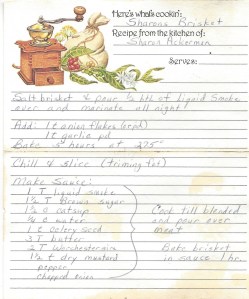 Here's what's cookin': Sharons Brisket
Recipe from the kitchen of: Sharon Ackerman
Serves:
Salt brisket & pour 1/2 btl of liquid smoke
over and marinate all night
Add: 1 t onion flakes (grnd)
1 t garlic pd
Bake 5 hours at 275°
Chill & slice (triming fat)
Make Sauce:
1 T liquid smoke
1 1/2 T Brown sugar
1 c catsup
3/4 c water
1 t celery seed
3 T butter
2 T Worchestersire
1 1/2 t dry mustard
pepper
chopped onion
Cook till blended
and pour over
meat
Bake brisket
in sauce 1 hr.